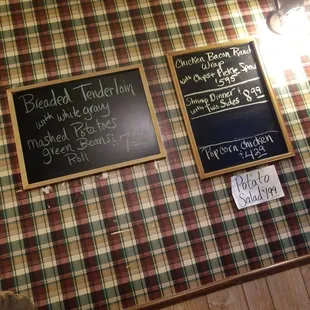 Breaded Tenderloin
with white gravy
mashed Potatoes
green Beans
Roll
Chicken Bacon Ranch
Wrap
with Chips + Pickle Spear
$5.95
Shrimp Dinner
with Two Sides 8.99
Popcorn Chicken
4.29
Potato
Salad 1.99